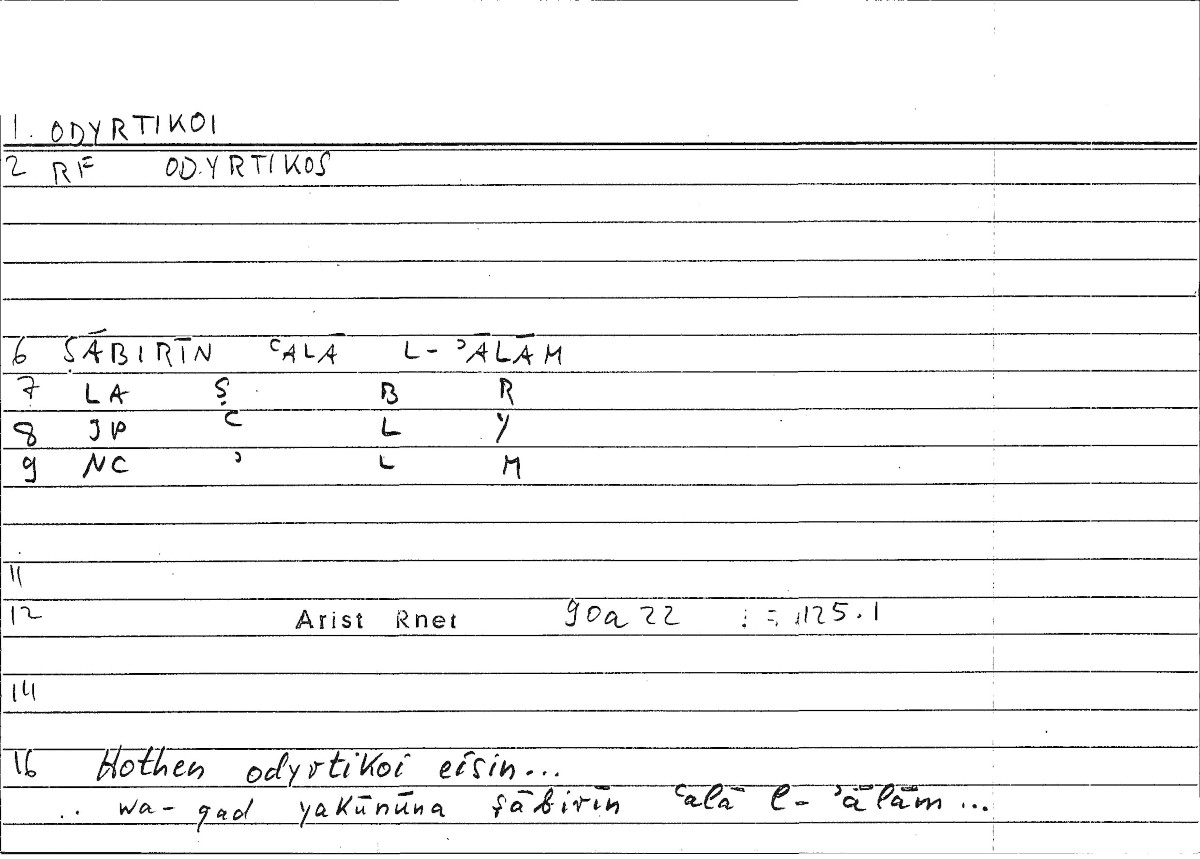 1. ODYRTIKOI
2 RF ODYRTIKOS
6 ṢĀBIRĪN ʿALĀ L-ʾĀLĀM
7 LA Ṣ B R
8 JP ʿ L Y
9 NC ʾ L M
11
12 Arist Rhet 90a22 := 125.1
14
16 Hothen odyrtikoi eisin...
.. wa-qad yakūnūna ṣābirīn ʿalā l-ʾālām...